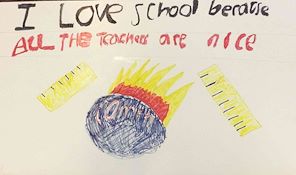 I LOVE school because
ALL THE Teachers are nice